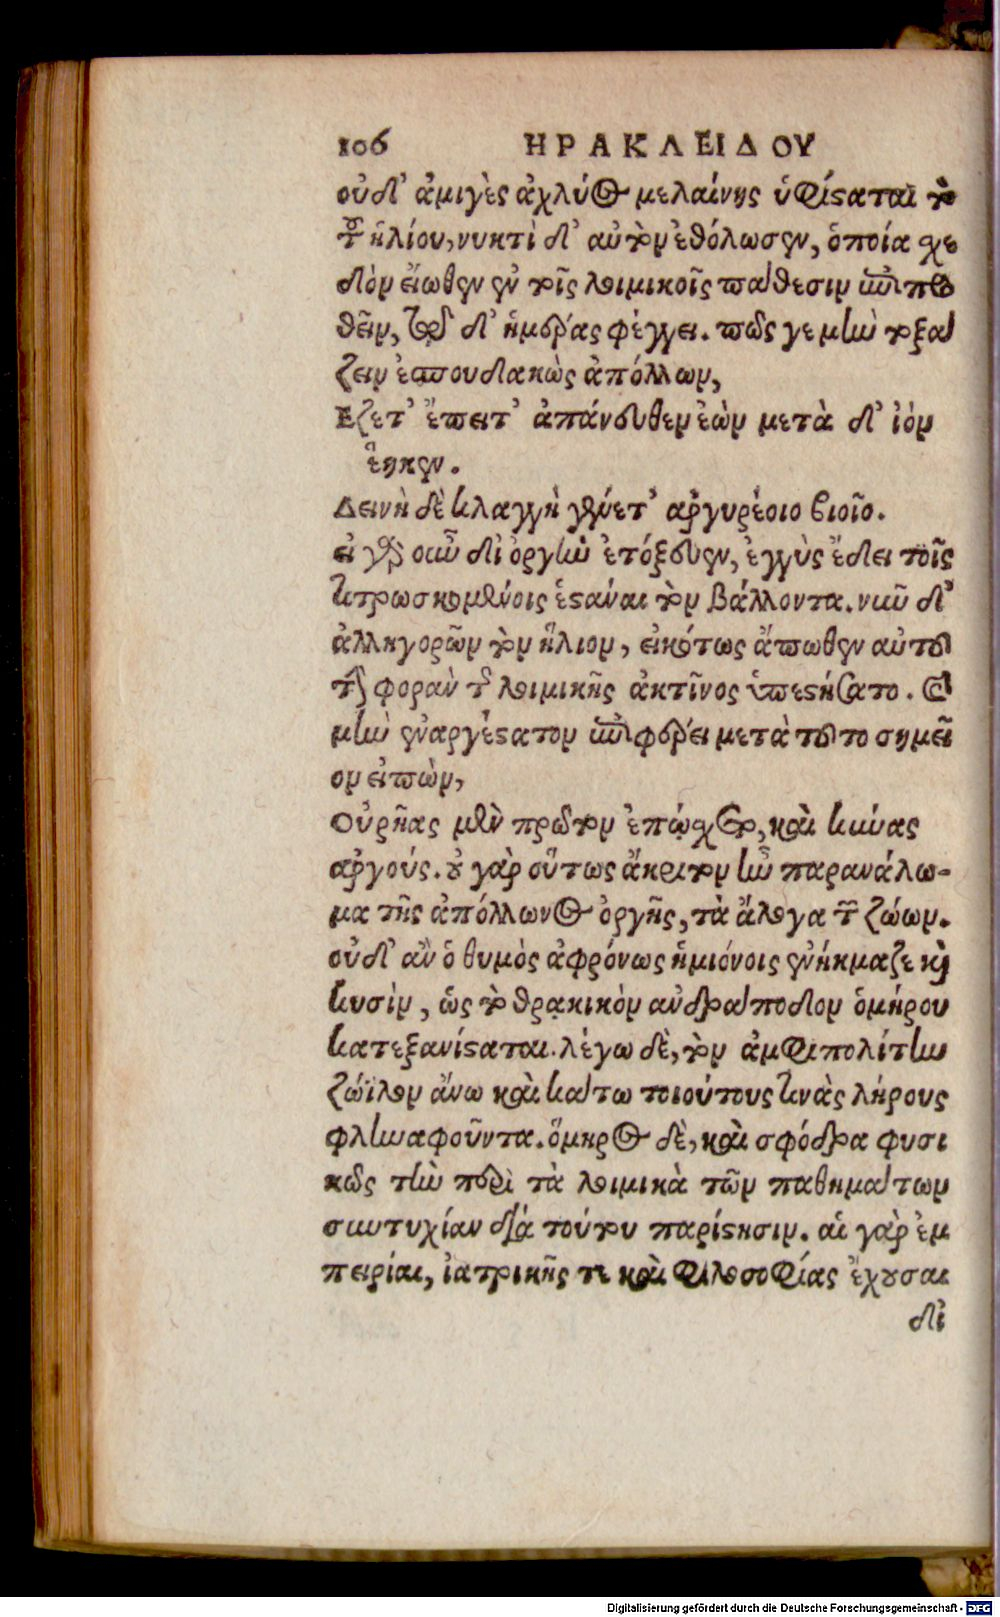 106 ΗΡΑΚΛΕΙΔΟΥ
οὐδ' ἀμιγὲς ἀχλύος μελαίνης ὑφίσαται τὸ
τοῦ ἡλίου, νυκτὶ δ' αὐτὸν ἐθόλωσεν, ὁποία χε
δὸν εἴωθεν ἐν τοῖς λοιμικοῖς παθεσιν ἐπιπο
θεῖν, τὸ δ' ἡμέρας φέγγει. πῶς γε μὴν τοξά
ζειν ἐσπουδακὼς ἀπόλλων,
Εζετ' ἔπειτ' ἀπάνευθεν ἐὼν μετὰ δ' ἰὸν
ἕηκεν.
Δεινὴ δὲ κλαγγὴ γένετ' ἀργυρέοιο βιοῖο.
εἰ γὰρ οὖν δι' ὀργὴν ἐτόξευεν, ἐγγὺς ἔδει τοῖς
τιτρωσκομένοις ἑσάναι τὸν βάλλοντα. νῦν δ'
ἀλληγορῶν τὸν ἥλιον, εἰκότως ἄπωθεν αὐτοῦ
τὴν φορὰν τῆς λοιμικῆς ἀκτῖνος ὑπεσήσατο. καὶ
μὴν ἐναργέσατον ἐπιφέρει μετὰ τοῦτο σημεῖ
ον εἰπὼν,
Οὐρῆας μὲν πρῶτον ἐπῴχετο, καὶ κύνας
ἀργούς. οὐ γὰρ οὕτως ἄκριτον ἦν παρανάλω-
μα τῆς ἀπόλλωνος ὀργῆς, τὰ ἄλογα τῶν ζώων.
οὐδ' ἂν ὁ θυμὸς ἀφρόνως ἡμιόνοις ἐνήκμαζε καὶ
κυσὶν, ὡς τὸ θρᾳκικὸν ἀνδράποδον ὁμήρου
κατεξανίσαται. λέγω δὲ, τὸν ἀμφιπολίτην
ζώϊλον ἄνω καὶ κάτω τοιούτους τινὰς λήρους
φληναφοῦντα. ὅμηρος δὲ, καὶ σφόδρα φυσι
κῶς τὴν περὶ τὰ λοιμικὰ τῶν παθημάτων
συντυχίαν διὰ τούτου παρίσησιν. αἱ γὰρ ἐμ
πειρίαι, ἰατρικῆς τε καὶ φιλοσοφίας ἔχουσαι
δι
Digitalisierung gefördert durch die Deutsche Forschungsgemeinschaft - DFG